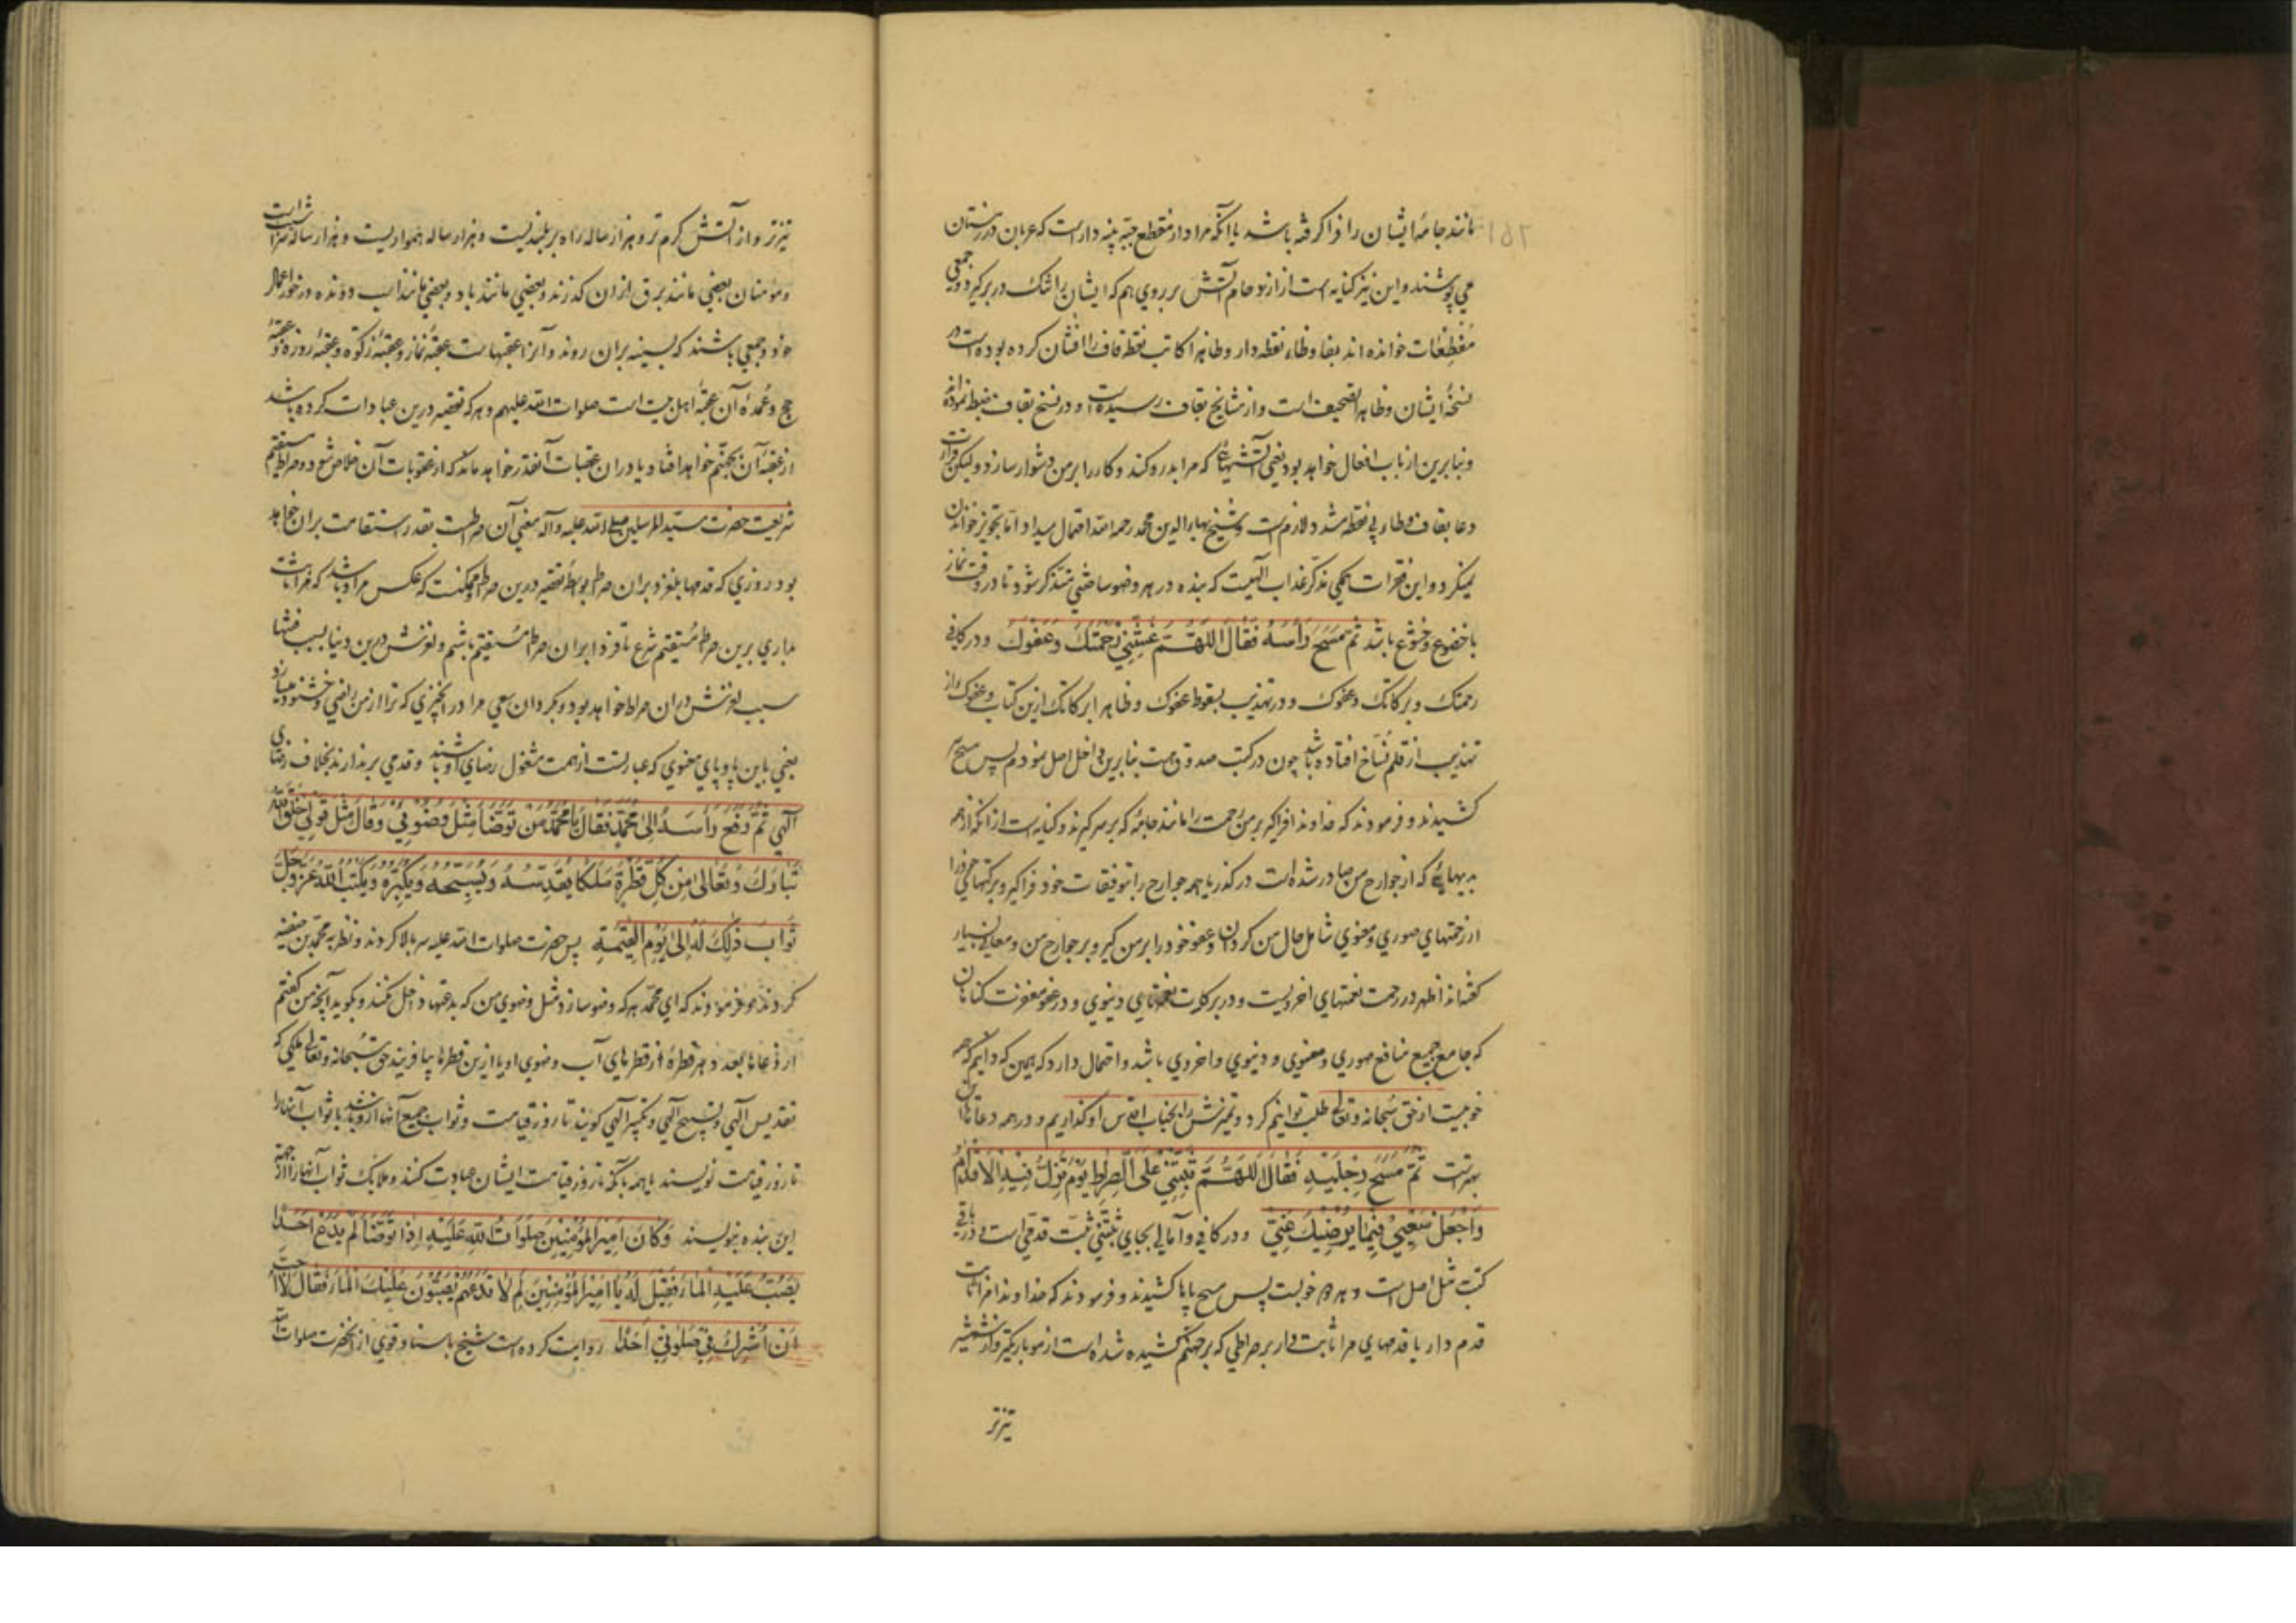 مانند جامهٔ ایشان را فرا کرفته باشد یا آنکه مراد از مقطع جبهٔ پنبه دار است که عربان در زمستان
می پوشند و این نیز کنایه است از ازدحام آتش بر روی هم که ایشان را تنک در بر گیرد و جمعی
مُفْظِعٰات خوانده اند بفا و ظاء نقطه دار و ظاهرا کاتب نقطه قاف را افشان کرده بوده است در
نسخهٔ ایشان و ظاهرا تصحیف است و از مشایخ بقاف رسیده است و در نسخ بقاف ضبط نموده اند
و بنا برین از باب افعال خواهد بود یعنی آتشهایی که مرا بدرد کند و کار را بر من دشوار سازد و لیکن قرائت
دعا بقاف و طاء بی نقطه مشدد لازمست و شیخ بهاء الدین محمد رحمه الله احتمال میداد اما تجویز خواندن
نمیکرد و این فقرات همکی مذکر عذاب الهیست که بنده در هر وضو ساختنی متذکر شود تا در وقت نماز
با خضوع و خشوع باشد ثُمَّ مَسَحَ رَأْسَهُ فَقٰالَ اللّٰهُمَّ غَشِّنِي رَحْمَتَكَ وَعَفْوَكَ و در کافی
رحمتک و برکاتک و عفوک و در تهذیب بسقوط عفوک و ظاهرا برکاتک ازین کتاب و عفوک از
تهذیب از قلم نسّاخ افتاده باشد چون در کتب صدوق هست بنا برین داخل اصل نمودم پس مسح سر
کشیدند و فرمودند که خداوندا فراگیر بر من رحمت را مانند جامه که بر سر گیرند و کنایه است از آنکه از همه
بدیهائی که از جوارح من صادر شده است در گذر یا همه جوارح را بتوفیقات خود فراگیر و برکتهای خود را
از رحمتهای صوری و معنوی شامل حال من کردان و عفو خود را بر من گیر و بر جوارح من و معانی بسیار
کفته اند اظهر در رحمت نعمتهای اخرویست و در برکات نعمتهای دنیوی و در عفو مغفرت کناهان
که جامع جمیع منافع صوری و معنوی و دنیوی و اخروی باشد و احتمال دارد که همین که دانیم که همه
خوبیست از حق سُبحانه و تعالی طلب توانیم کرد و تمیزش را بجناب اقدس او گذاریم و در همه دعاها این
بهتر است ثُمَّ مَسَحَ رِجْلَيْهِ فَقٰالَ اللّٰهُمَّ ثَبِّتْنِي عَلَى الصِّرٰاطِ يَوْمَ تَزِلُّ فِيهِ الْاَقْدٰامُ
وَاجْعَلْ سَعْيِي فِيمٰا يُرْضِيكَ عَنِّي و در کافی و آمالی بجای ثبّتنی ثبّت قدمی است و در باقی
کتب مثل اصل است و هر دو خوبست پس مسح پاها کشیدند و فرمودند که خداوندا مرا ثابت
قدم دار یا قدمهای مرا ثابت دار بر صراطی که بر جهنم کشیده شده است از مو باریکتر و از شمشیر
تیزتر
تیزتر و از آتش گرم تر و هزار ساله راه بر بلندیست و هزار ساله هموار یست و هزار ساله سراشیب است
و مؤمنان بعضی مانند برق ازان گذرند و بعضی مانند باد و بعضی مانند اسب دونده در خور اعمال
خود و جمعی باشند که بسینه بران روند و آنرا عقبهاست عقبهٔ نماز و عقبهٔ زکوة و عقبهٔ روزه و عقبهٔ
حج و عُمدهٔ آن عقبهٔ اهل بیت است صلوات الله علیهم و هر که تقصیر درین عبادات کرده باشد
از عقبهٔ آن بجهنّم خواهد افتاد یا دران عقبات آنقدر خواهد ماند که از عقوبات آن خلاص شود و صراط مستقیم
شریعت حضرت سیّد المرسلین صلی الله علیه و آله معنی آن صراطست بقدر استقامت بران خواهد
بود روزی که قدمها بلغزد بران صراط بواسطهٔ تقصیر درین صراط و ممکنست که عکس مراد باشد که مرا ثابت
بداری برین صراط مُستقیم شرع تا فردا بران صراط مُستقیم باشم و لغزش درین دنیا بسبب فتنها
سبب لغزش دران صراط خواهد بود و بگردان سعی مرا در آنچیزی که ترا از من راضی و خشنود میسازد
یعنی باین پا و پای معنوی که عبارتست از همت مشغول رضای او باشند و قدمی بر ندارند بخلاف رضای
الٰهی ثُمَّ رَفَعَ رَأْسَهُ اِلىٰ مُحَمَّدٍ فَقٰالَ يٰا مُحَمَّدُ مَنْ تَوَضَّأَ مِثْلَ وُضُوئِي وَقٰالَ مِثْلَ قَوْلِي خَلَقَ اللّٰهُ
تَبٰارَكَ وَتَعٰالىٰ مِنْ كُلِّ قَطْرَةٍ مَلَكًا يُقَدِّسُهُ وَيُسَبِّحُهُ وَيُكَبِّرُهُ وَيَكْتُبُ اللّٰهُ عَزَّ وَجَلَّ
ثَوٰابَ ذٰلِكَ لَهُ اِلىٰ يَوْمِ الْقِيٰمَةِ پس حضرت صلوات الله علیه سر بالا کردند و نظر به محمّد بن حنفیه
کردند و فرمودند که ای محمّد هر که وضو سازد مثل وضوی من که بدعتها داخل نکند و بگوید آنچه من گفتم
از دُعاها بعدد هر قطرهٔ از قطرهای آب وضوی او یا ازین قطرها بیافریند حق سُبحانه و تعالی ملکی که
تقدیس الٰهی و تسبیح الٰهی و تکبیر الٰهی گویند تا روز قیامت و ثواب جمیع آنها از او باشد یا ثواب آنها را
تا روز قیامت نویسند یا همه با آنکه تا روز قیامت ایشان عبادت کنند و ملایک ثواب آنها را از جهة
این بنده بنویسند وَكٰانَ اَمِيرُ الْمُؤْمِنِينَ صَلَوٰاتُ اللّٰهِ عَلَيْهِ اِذٰا تَوَضَّأَ لَمْ يَدَعْ اَحَدًا
يَصُبُّ عَلَيْهِ الْمٰاءَ فَقِيلَ لَهُ يٰا اَمِيرَ الْمُؤْمِنِينَ لِمَ لٰا تَدَعُهُمْ يَصُبُّونَ عَلَيْكَ الْمٰاءَ فَقٰالَ لٰا اُحِبُّ
اَنْ اُشْرِكَ فِي صَلٰوتِي اَحَدًا روایت کرده است شیخ باسناد قوی از انحضرت صلوات الله